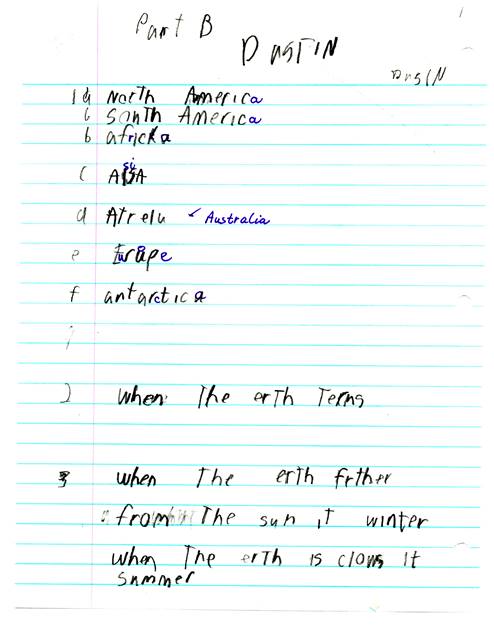 Part B
DUSTIN
DUSIN
1 a North America
b South America
b africka
c ASIA
d Atrelu ✓ Australia
e Europe
f antarctica
2 when the erth Terns
3 when the erth frther
from the sun it winter
when the erth is clows it
summer